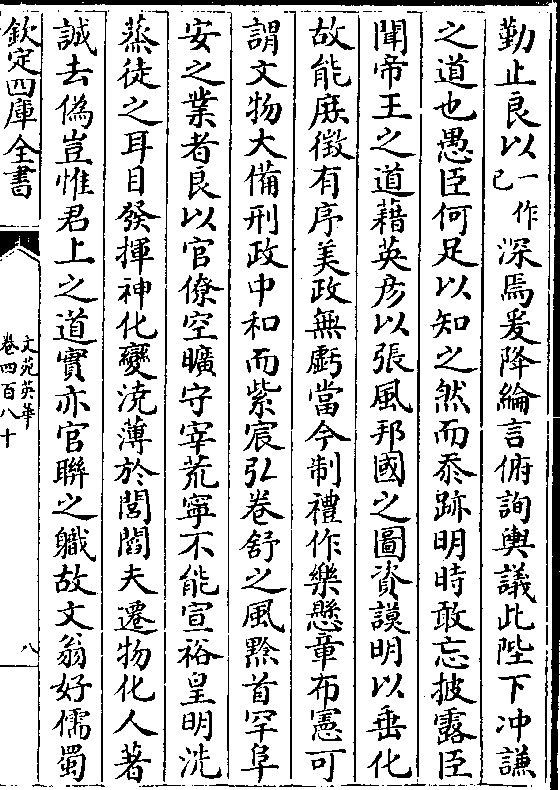 勤止良以一作已深焉爰降綸言俯詢輿議此陛下沖謙
之道也愚臣何足以知之然而忝跡明時敢忘披露臣
聞帝王之道藉英彦以張風邦國之圖資謨明以垂化
故能庶徴有序美政無虧當今制禮作樂懸章布憲可
謂文物大備刑政中和而紫宸弘卷舒之風黔首罕阜
安之業者良以官僚空曠守宰荒寧不能宣裕皇明洗
蒸徒之耳目發揮神化變澆薄於閭閻夫遷物化人著
誠去偽豈惟君上之道實亦官聯之職故文翁好儒蜀
欽定四庫全書
文苑英華
卷四百八十
八